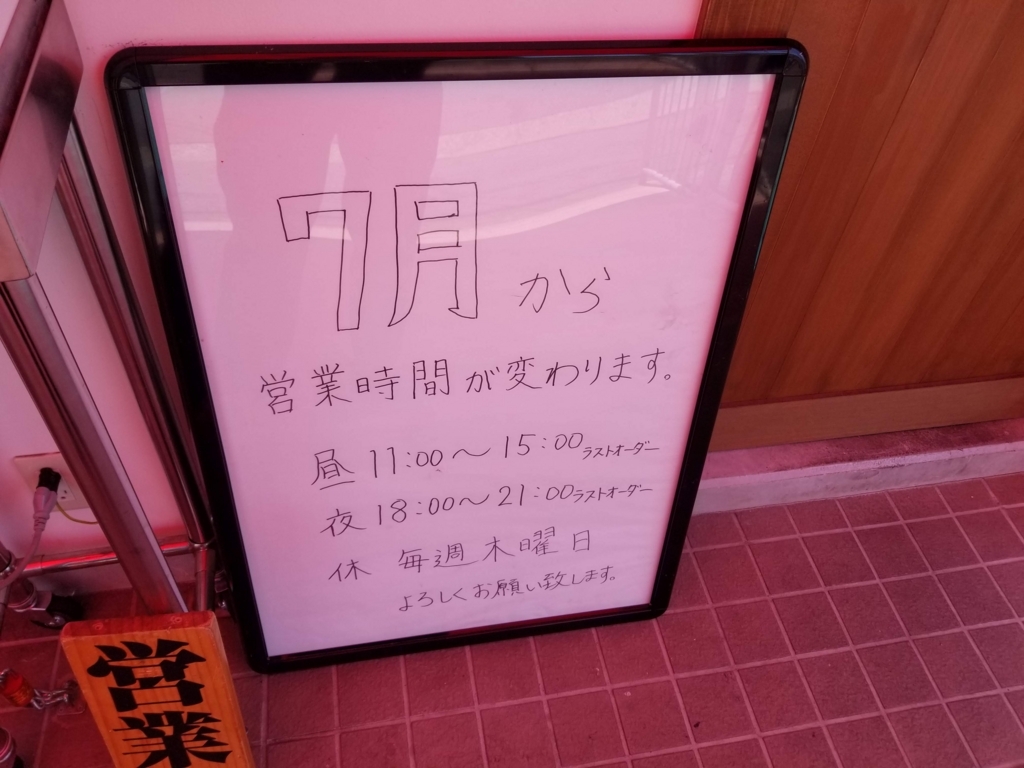 7月から
営業時間が変わります。
昼 11:00〜15:00ラストオーダー
夜 18:00〜21:00ラストオーダー
休 毎週木曜日
よろしくお願い致します。
営業